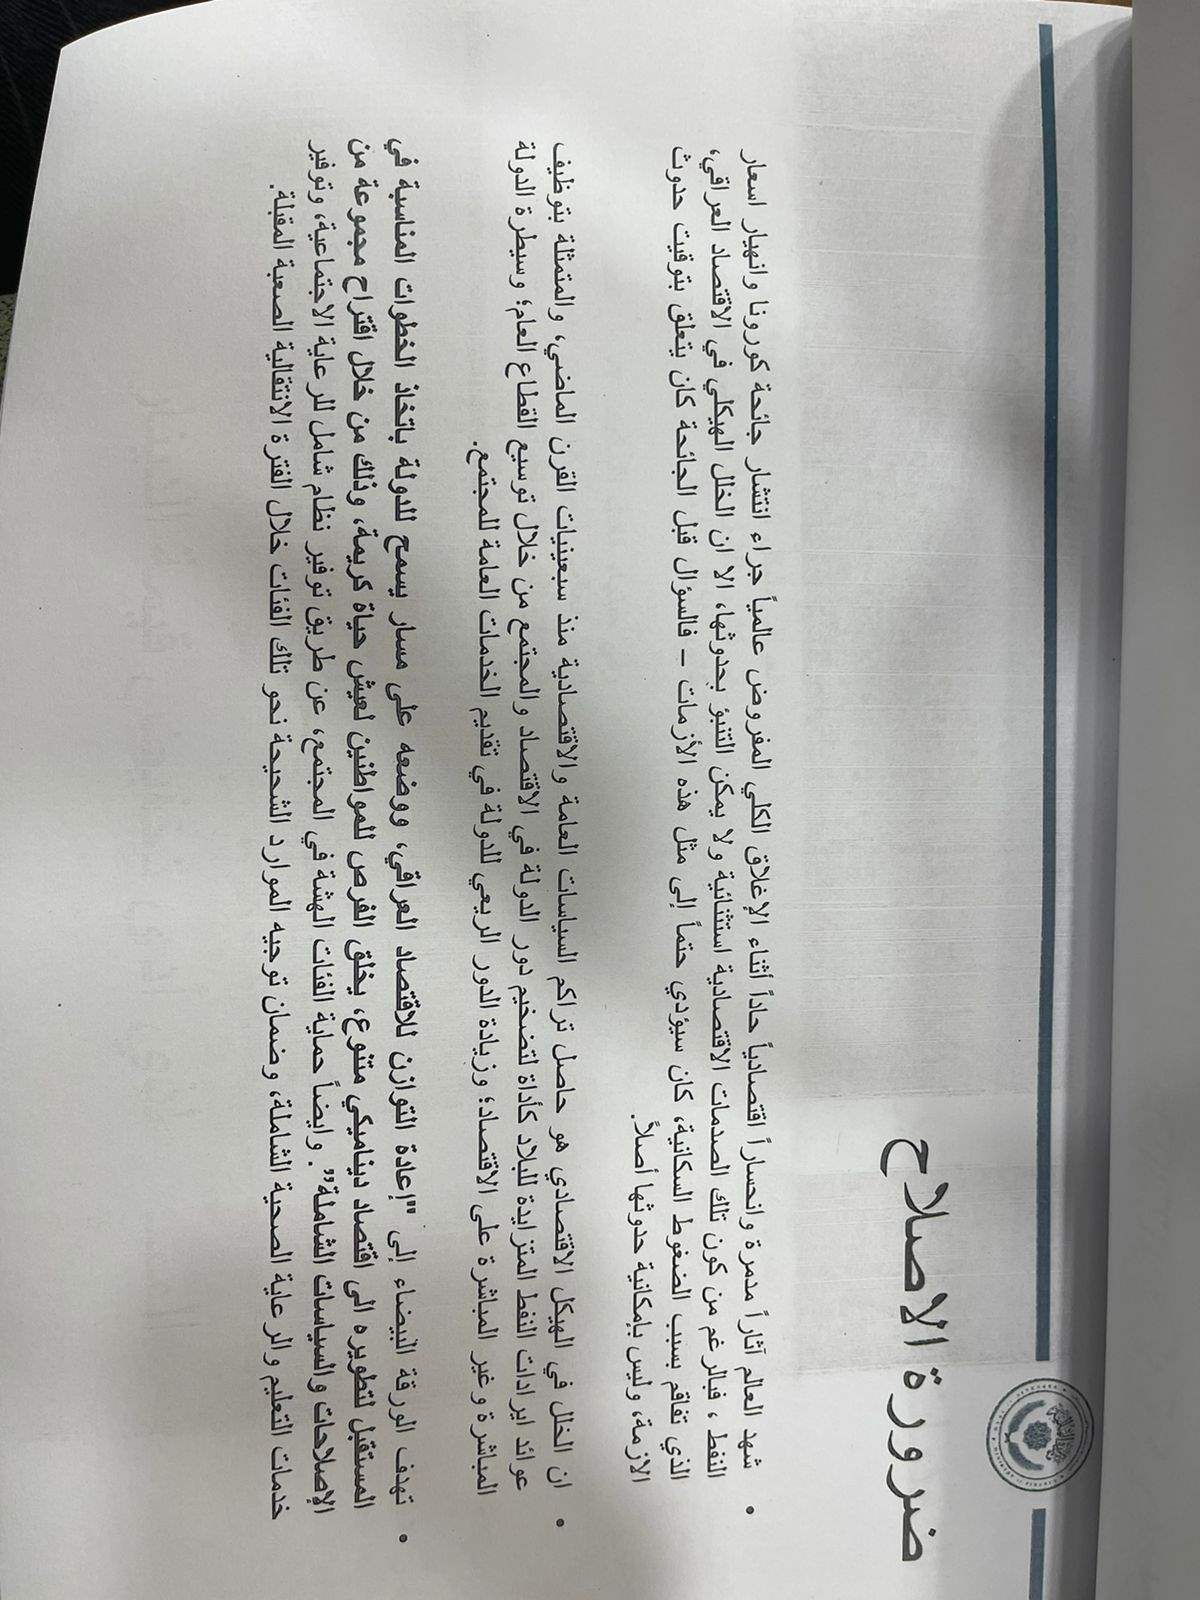 وزارة المالية
ضرورة الاصلاح
• شهد العالم آثاراً مدمرة وانحساراً اقتصادياً حاداً أثناء الإغلاق الكلي المفروض عالمياً جراء انتشار جائحة كورونا وانهيار اسعار
النفط ، فبالرغم من كون تلك الصدمات الاقتصادية استثنائية ولا يمكن التنبؤ بحدوثها، الا ان الخلل الهيكلي في الاقتصاد العراقي،
الذي تفاقم بسبب الضغوط السكانية، كان سيؤدي حتماً إلى مثل هذه الأزمات – فالسؤال قبل الجائحة كان يتعلق بتوقيت حدوث
الازمة، وليس بإمكانية حدوثها أصلاً.
• ان الخلل في الهيكل الاقتصادي هو حاصل تراكم السياسات العامة والاقتصادية منذ سبعينيات القرن الماضي، والمتمثلة بتوظيف
عوائد ايرادات النفط المتزايدة للبلاد كأداة لتضخيم دور الدولة في الاقتصاد والمجتمع من خلال توسيع القطاع العام؛ وسيطرة الدولة
المباشرة وغير المباشرة على الاقتصاد؛ وزيادة الدور الريعي للدولة في تقديم الخدمات العامة للمجتمع.
• تهدف الورقة البيضاء إلى "إعادة التوازن للاقتصاد العراقي، ووضعه على مسار يسمح للدولة باتخاذ الخطوات المناسبة في
المستقبل لتطويره الى اقتصاد ديناميكي متنوع، يخلق الفرص للمواطنين لعيش حياة كريمة، وذلك من خلال اقتراح مجموعة من
الإصلاحات والسياسات الشاملة". وايضاً حماية الفئات الهشة في المجتمع، عن طريق توفير نظام شامل للرعاية الاجتماعية، وتوفير
خدمات التعليم والرعاية الصحية الشاملة، وضمان توجيه الموارد الشحيحة نحو تلك الفئات خلال الفترة الانتقالية الصعبة المقبلة.